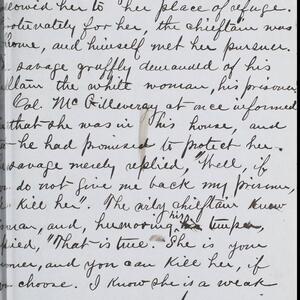 llowed her to her place of refuge.
tunately for her, the chieftain was
home, and himself met her pursuer.
savage gruffly demanded of his
ftain the white woman, his prisoner
Col. McGillenvray at once informed
that she was in his house, and
he had promised to protect her.
savage merely replied, "Well, if
do not give me back my prisoner,
kill her". The wily chieftain knew
man, and, humoring his temper,
plied, "That is true. She is your
soner, and you can kill her, if
ou choose. I know she is a weak